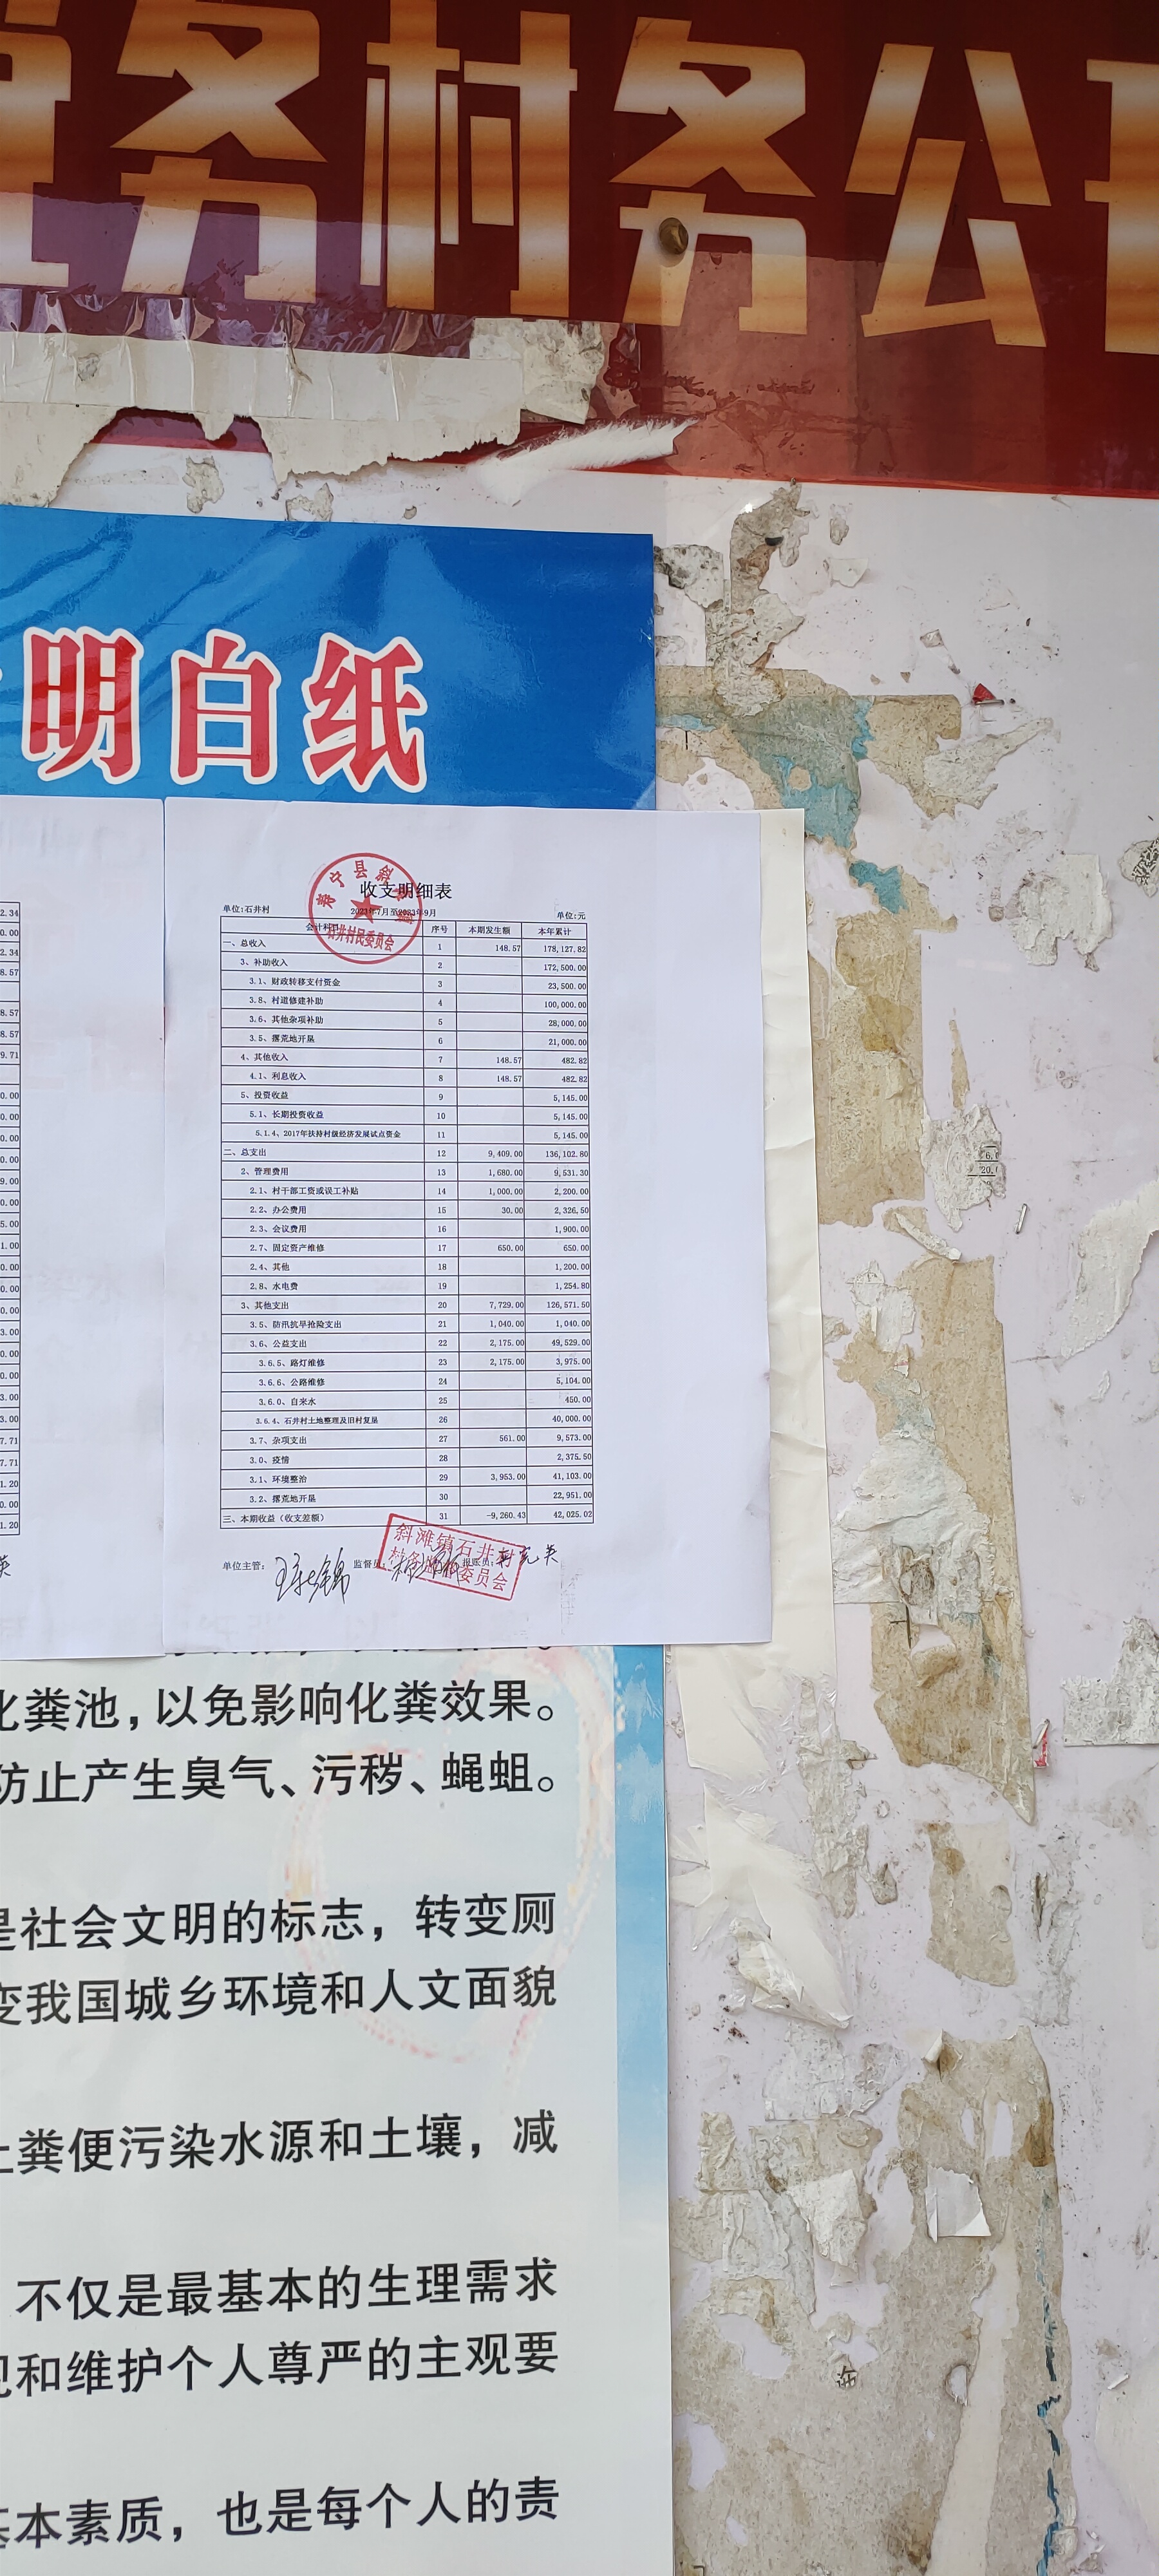 务村务公
明白纸
寿宁县斜滩镇
石井村民委员会
收支明细表
单位:石井村 2023年7月至2023年9月 单位:元
会计科目 序号 本期发生额 本年累计
一、总收入 1 148.57 178,127.82
3、补助收入 2 172,500.00
3.1、财政转移支付资金 3 23,500.00
3.8、村道修建补助 4 100,000.00
3.6、其他杂项补助 5 28,000.00
3.5、撂荒地开垦 6 21,000.00
4、其他收入 7 148.57 482.82
4.1、利息收入 8 148.57 482.82
5、投资收益 9 5,145.00
5.1、长期投资收益 10 5,145.00
5.1.4、2017年扶持村级经济发展试点资金 11 5,145.00
二、总支出 12 9,409.00 136,102.80
2、管理费用 13 1,680.00 9,531.30
2.1、村干部工资或误工补贴 14 1,000.00 2,200.00
2.2、办公费用 15 30.00 2,326.50
2.3、会议费用 16 1,900.00
2.7、固定资产维修 17 650.00 650.00
2.4、其他 18 1,200.00
2.8、水电费 19 1,254.80
3、其他支出 20 7,729.00 126,571.50
3.5、防汛抗旱抢险支出 21 1,040.00 1,040.00
3.6、公益支出 22 2,175.00 49,529.00
3.6.5、路灯维修 23 2,175.00 3,975.00
3.6.6、公路维修 24 5,104.00
3.6.0、自来水 25 450.00
3.6.4、石井村土地整理及旧村复垦 26 40,000.00
3.7、杂项支出 27 561.00 9,573.00
3.0、疫情 28 2,375.50
3.1、环境整治 29 3,953.00 41,103.00
3.2、撂荒地开垦 30 22,951.00
三、本期收益(收支差额) 31 -9,260.43 42,025.02
单位主管: 监督员: 报账员:
斜滩镇石井村
村务监督委员会
化粪池,以免影响化粪效果。
防止产生臭气、污秽、蝇蛆。
是社会文明的标志，转变厕
变我国城乡环境和人文面貌
粪便污染水源和土壤，减
不仅是最基本的生理需求
和维护个人尊严的主观要
基本素质，也是每个人的责